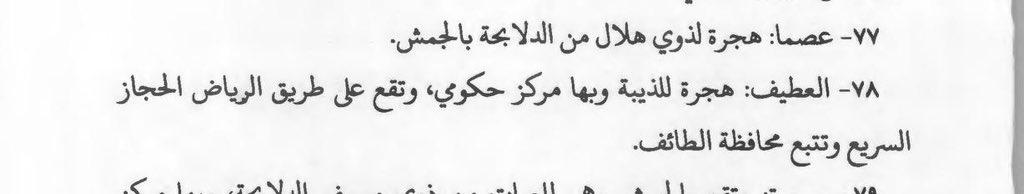 ٧٧- عصما: هجرة لذوي هلال من الدلابحة بالجمش.
٧٨- العطيف: هجرة للذيبة وبها مركز حكومي، وتقع على طريق الرياض الحجاز
السريع وتتبع محافظة الطائف.